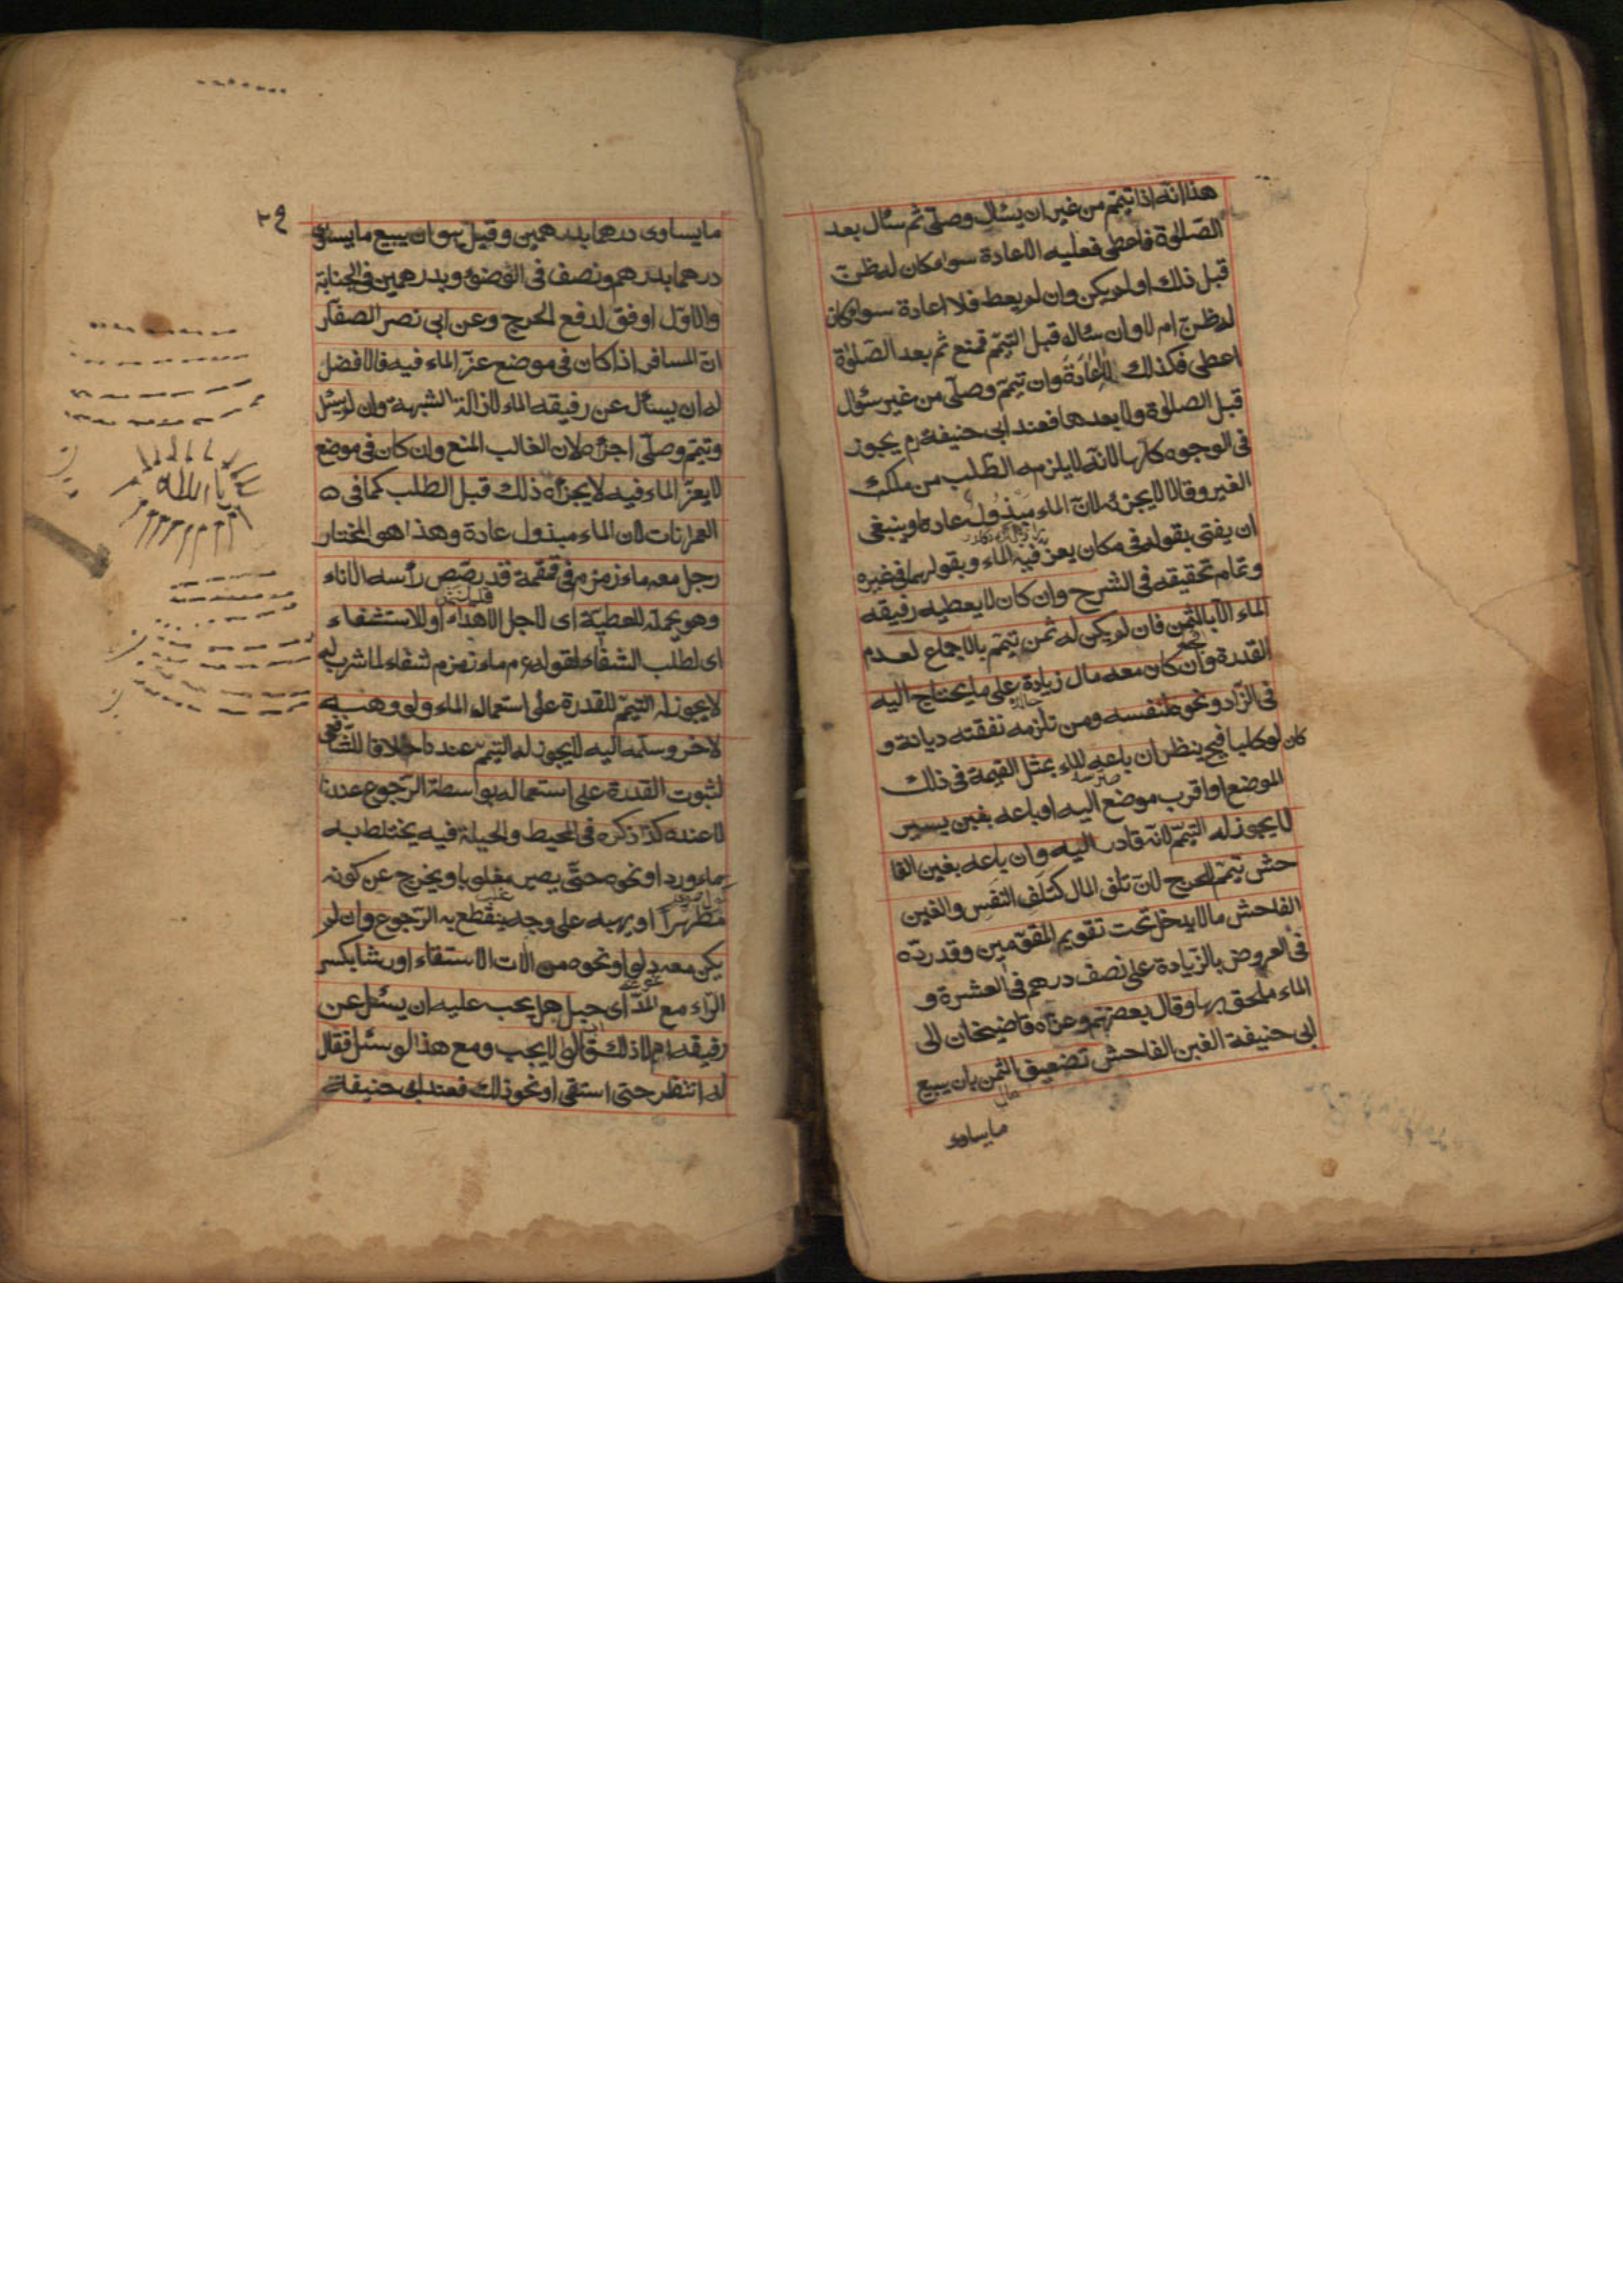 هذا انه اذا تيمّم من غير ان يسئال وصلّى ثم سئال بعد
الصّلوة فاعطى فعليه الاعادة سواء كان له ظنّ
قبل ذلك او لم يكن وان لم يعط فلا اعادة سواء كان
له ظنّ ام لا وان سئاله قبل التيمّم فمنع ثم بعد الصّلوة
اعطى فكذلك لا اعادة وان تيمّم وصلّى من غير سئوال
قبل الصلوة ولا بعدها فعند ابى حنيفة رم يجوز
فى الوجوه كلّها لانّه لا يلزمه الطّلب من ملك
الغير وقالا لا يجزئه لانّ الماء مبذول عادة وينبغى
ان يفتى بقوله فى مكان يعز فيه الماء وبقولهما فى غيره
وتمام تحقيقه فى الشرح وان كان لا يعطيه رفيقه
الماء الّا بالثمن فان لم يكن له ثمن تيمّم بالاجماع لعدم
القدرة وان كان معه مال زيادة على ما يحتاج اليه
فى الزّاد ونحوه لنفسه ومن تلزمه نفقته ديانة و
كان لو كلبا فح ينظر ان باعه الماء بمثل القيمة فى ذلك
الموضع او اقرب موضع اليه او باعه بغبن يسير
لا يجوز له التيمّم لانّه قادر اليه وان باعه بغبن الفا
حش تيمّم للحرج لانّ تلف المال كتلف النفس والغبن
الفاحش مالا يدخل تحت تقويم المقوّمين وقد ردّه
فى العروض بالزّيادة على نصف درهم فى العشرة و
الماء ملحق بها وقال بعضهم وعزاه قاضيخان الى
ابى حنيفة الغبن الفاحش تضعيف الثمن بان يبيع
مايساوى
مايساوى درهما بدرهمين وقيل هو ان يبيع مايساوى
درهما بدرهم ونصف فى الوضوء وبدرهمين فى الجنابة
والاوّل اوفق لدفع الحرج وعن ابى نصر الصفّار
انّ المسافر اذا كان فى موضع عزّ الماء فيه فالافضل
له ان يسئال عن رفيقه الماء لازالة الشبهة وان لم يسئل
وتيمّم وصلّى اجزاه لان الغالب المنع وان كان فى موضع
لا يعزّ الماء فيه لا يجزئه ذلك قبل الطلب كما فى
العمرانات لان الماء مبذول عادة وهذا هو المختار
رجل معه ماء زمزم فى قمقمة قد رصّص رأسه الاناء
وهو يحمله للعطيّة اى لاجل الاهداء او للاستشفاء
اى لطلب الشفاء لقوله عم ماء زمزم شفاء لما شرب له
لا يجوز له التيمّم للقدرة على استعماله الماء ولو وهبه
لاخر وسلّمه اليه لا يجوز له التيمّم عندنا خلافا للشافعى
لثبوت القدرة على استعماله بواسطة الرّجوع عندنا
لا عنده كذا ذكره فى المحيط والحيلة فيه يختلط به
بماء ورد او نحوه حتّى يصير مغلوبا ويخرج عن كونه
مطهرا او يهبه على وجه ينقطع به الرّجوع وان لم
يكن معه دلو او نحوه من الات الاستقاء اورشا بكسر
الرّاء مع المدّ اى حبل هل يجب عليه ان يسئل عن
رفيقه ام لا ذلك قالوا لا يجب ومع هذا لو سئل فقال
له انتظر حتى استقى او نحو ذلك فعند ابى حنيفة
يا الله